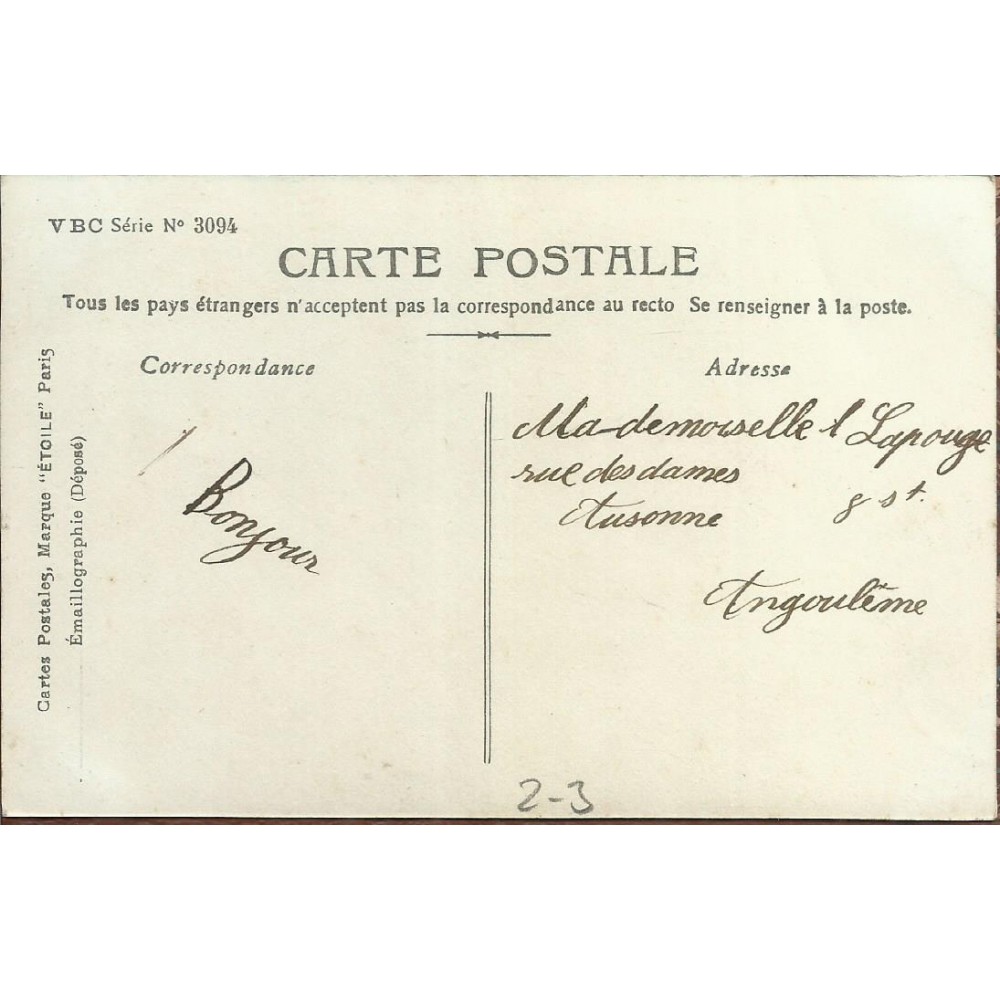 VBC Série Nº 3094
CARTE POSTALE
Tous les pays étrangers n'acceptent pas la correspondance au recto Se renseigner à la poste.
Cartes Postales, Marque "ÉTOILE" Paris
Émaillographie (Déposé)
Correspondance
Bonjour
Adresse
Mademoiselle L Lapouge
rue des dames
8 st Ausonne
Angoulême
2-3